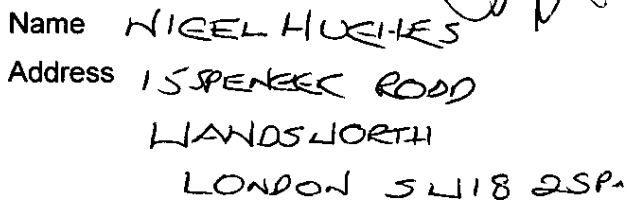 Name NIGEL HUGHES
Address 15 SPENCER ROAD
WANDSWORTH
LONDON SW18 2SP.